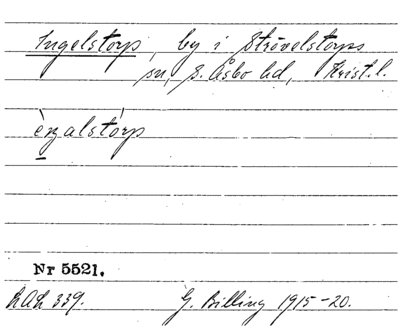 Ingelstorp, by i Strövelstorps
sn, S. Åsbo hd, Krist. l.
èŋalstórp
Nr 5521.
LAL 339. G. Billing 1915-20.